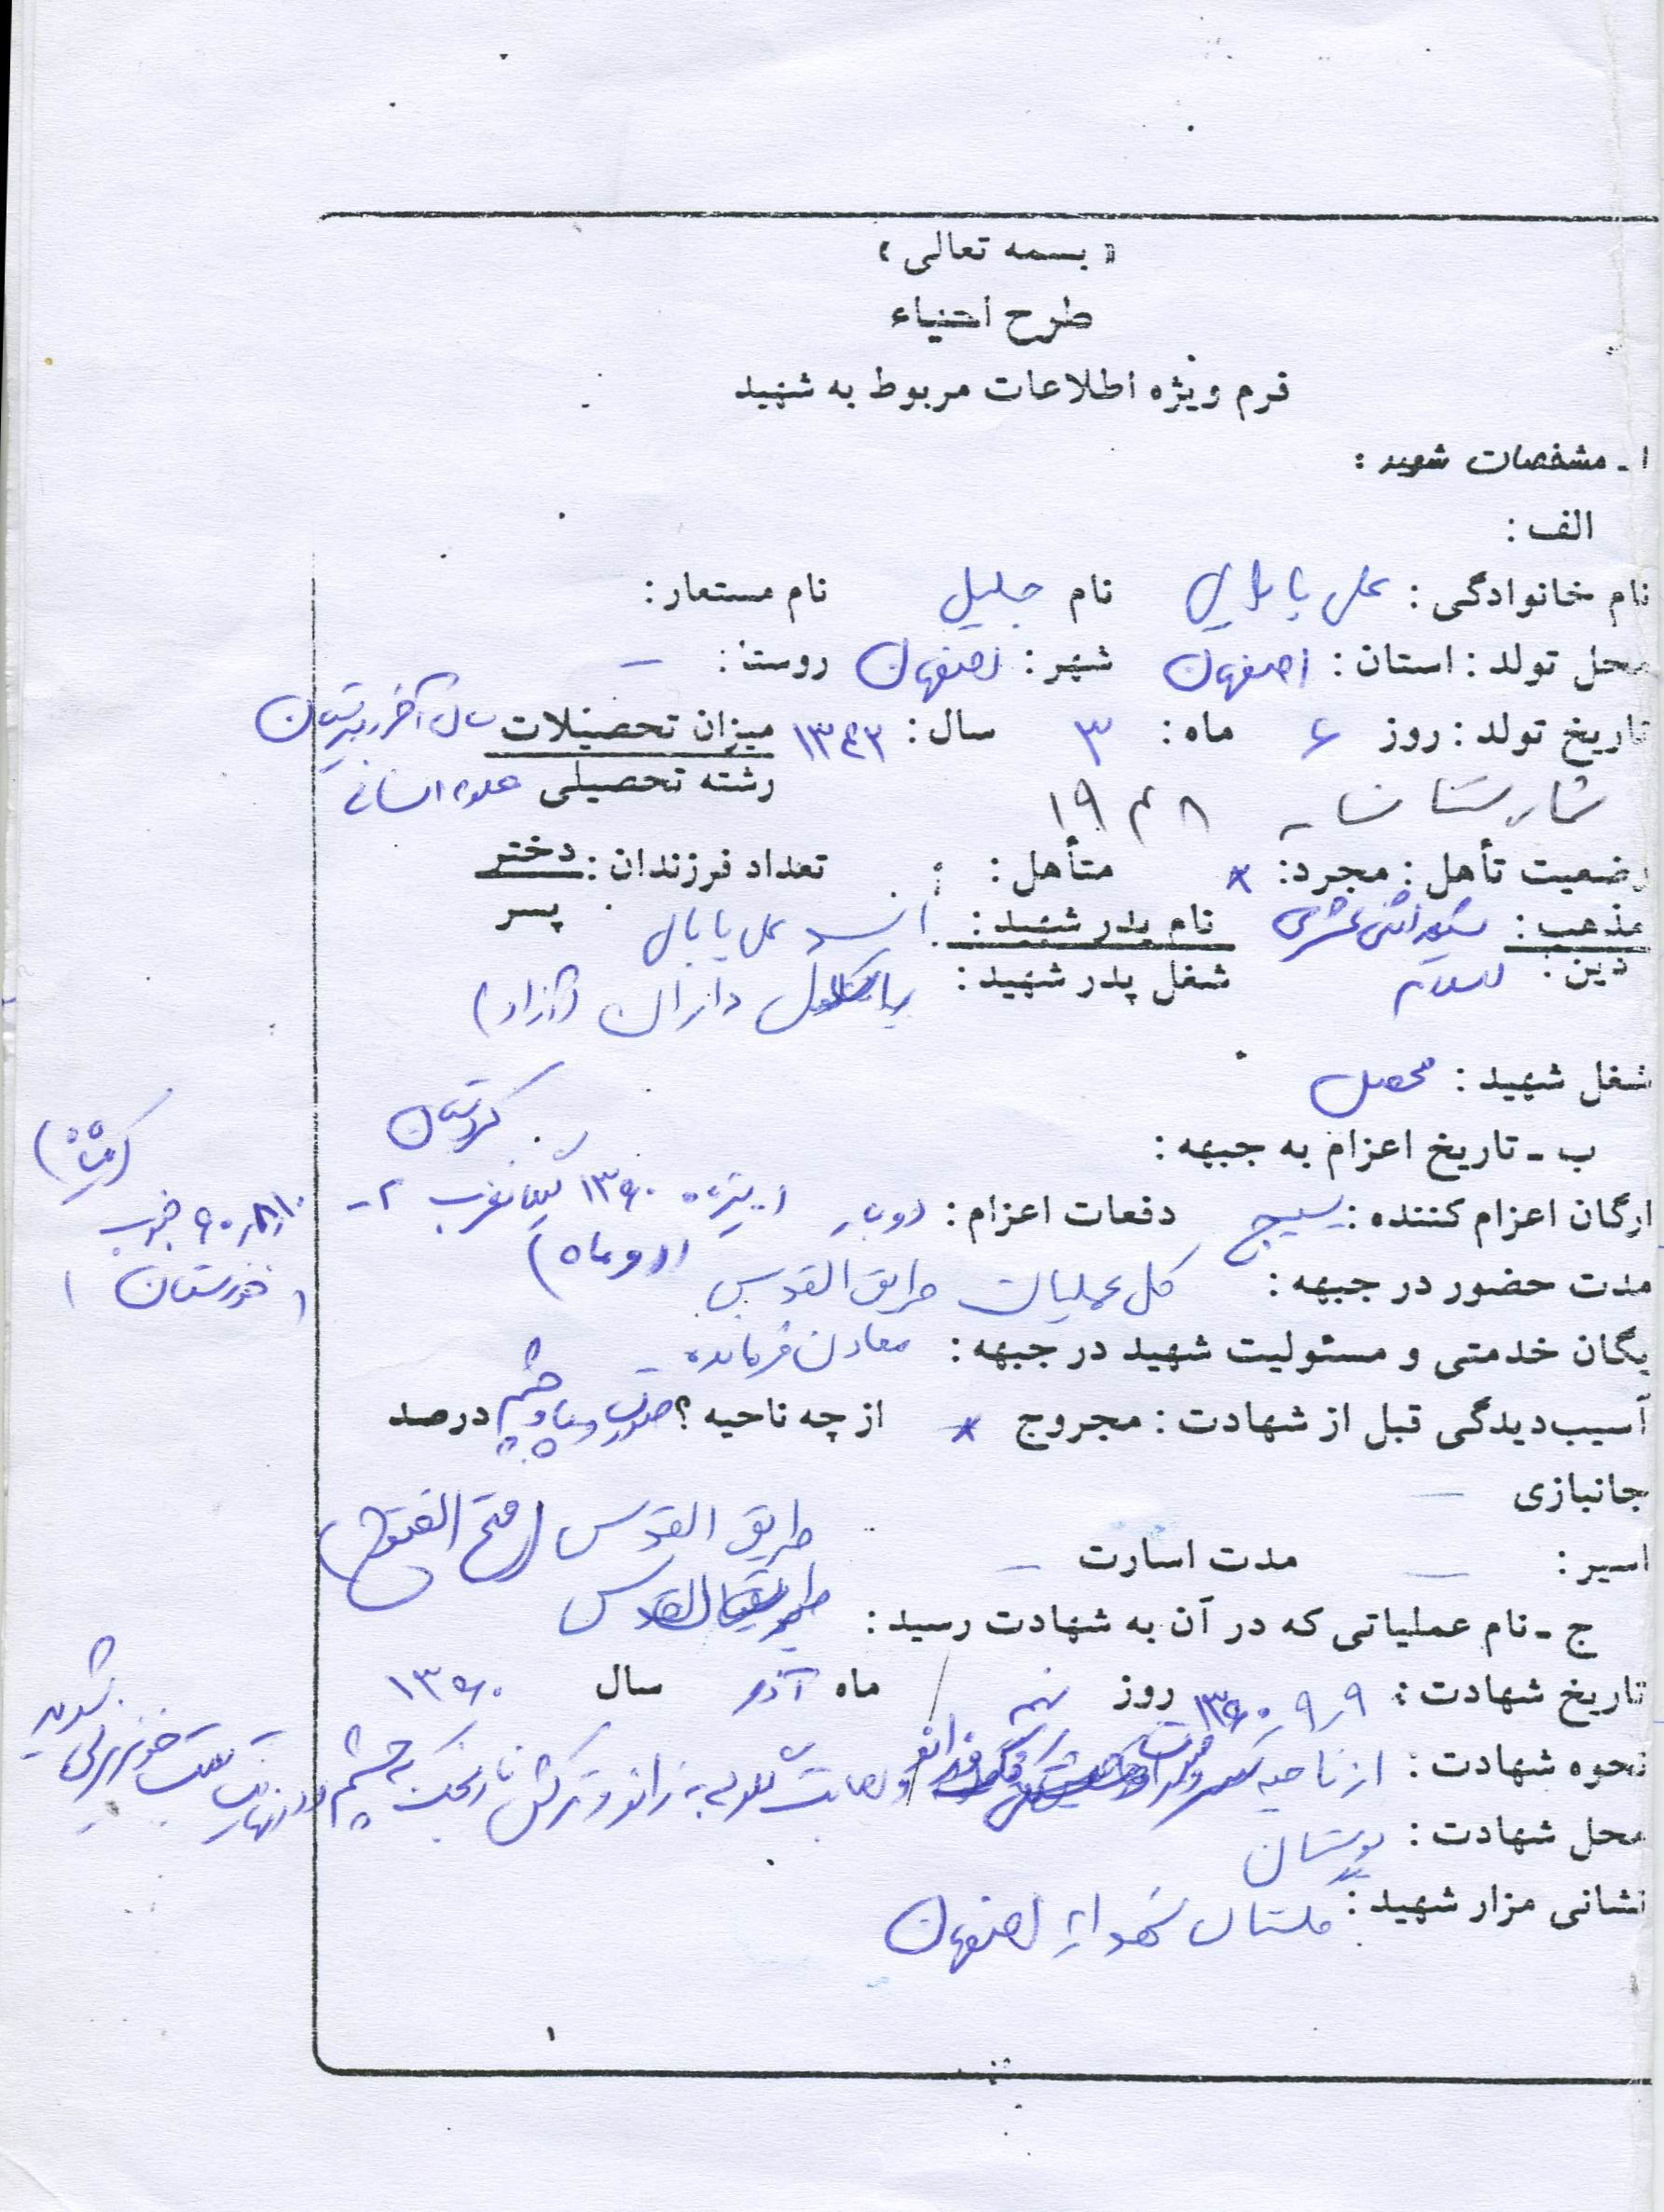 « بسمه تعالی »
طرح احیاء
فرم ویژه اطلاعات مربوط به شهید
۱ - مشخصات شهید :
الف :
نام خانوادگی : علی بابایی نام جلیل نام مستعار :
محل تولد : استان : اصفهان شهر : اصفهان روستا : -
تاریخ تولد : روز ۶ ماه : ۳ سال : ۱۳۴۳ میزان تحصیلات سال آخر دبیرستان
۱۹۴۸ رشته تحصیلی علوم انسانی
وضعیت تأهل : مجرد : * متأهل : تعداد فرزندان : دختر
مذهب : شیعه اثنی عشری نام پدر شهید : پسر
دین : اسلام شغل پدر شهید : داران (آزاد)
شغل شهید : محصل
کردستان
ب - تاریخ اعزام به جبهه :
ارگان اعزام کننده : بسیج دفعات اعزام : دوبار ۱- تیرماه ۱۳۶۰ ۲- ۶۰/۸/۱۰ جنوب
(دو ماه) (خوزستان)
مدت حضور در جبهه : کل عملیات طریق القدس
یگان خدمتی و مسئولیت شهید در جبهه : معاون فرمانده -
آسیب‌دیدگی قبل از شهادت : مجروح * از چه ناحیه ؟ صورت و چشم درصد
جانبازی -
طریق القدس (فتح الفتوح)
اسیر : - مدت اسارت -
ج - نام عملیاتی که در آن به شهادت رسید : طریق القدس
تاریخ شهادت : ۱۳۶۰/۹/۹ روز نهم ماه آذر سال ۱۳۶۰
نحوه شهادت : از ناحیه و اصابت گلوله به زانو و ترکش نارنجک به چشم و در نهایت خونریزی شدید
محل شهادت : بستان
نشانی مزار شهید : گلستان شهدای اصفهان
۱